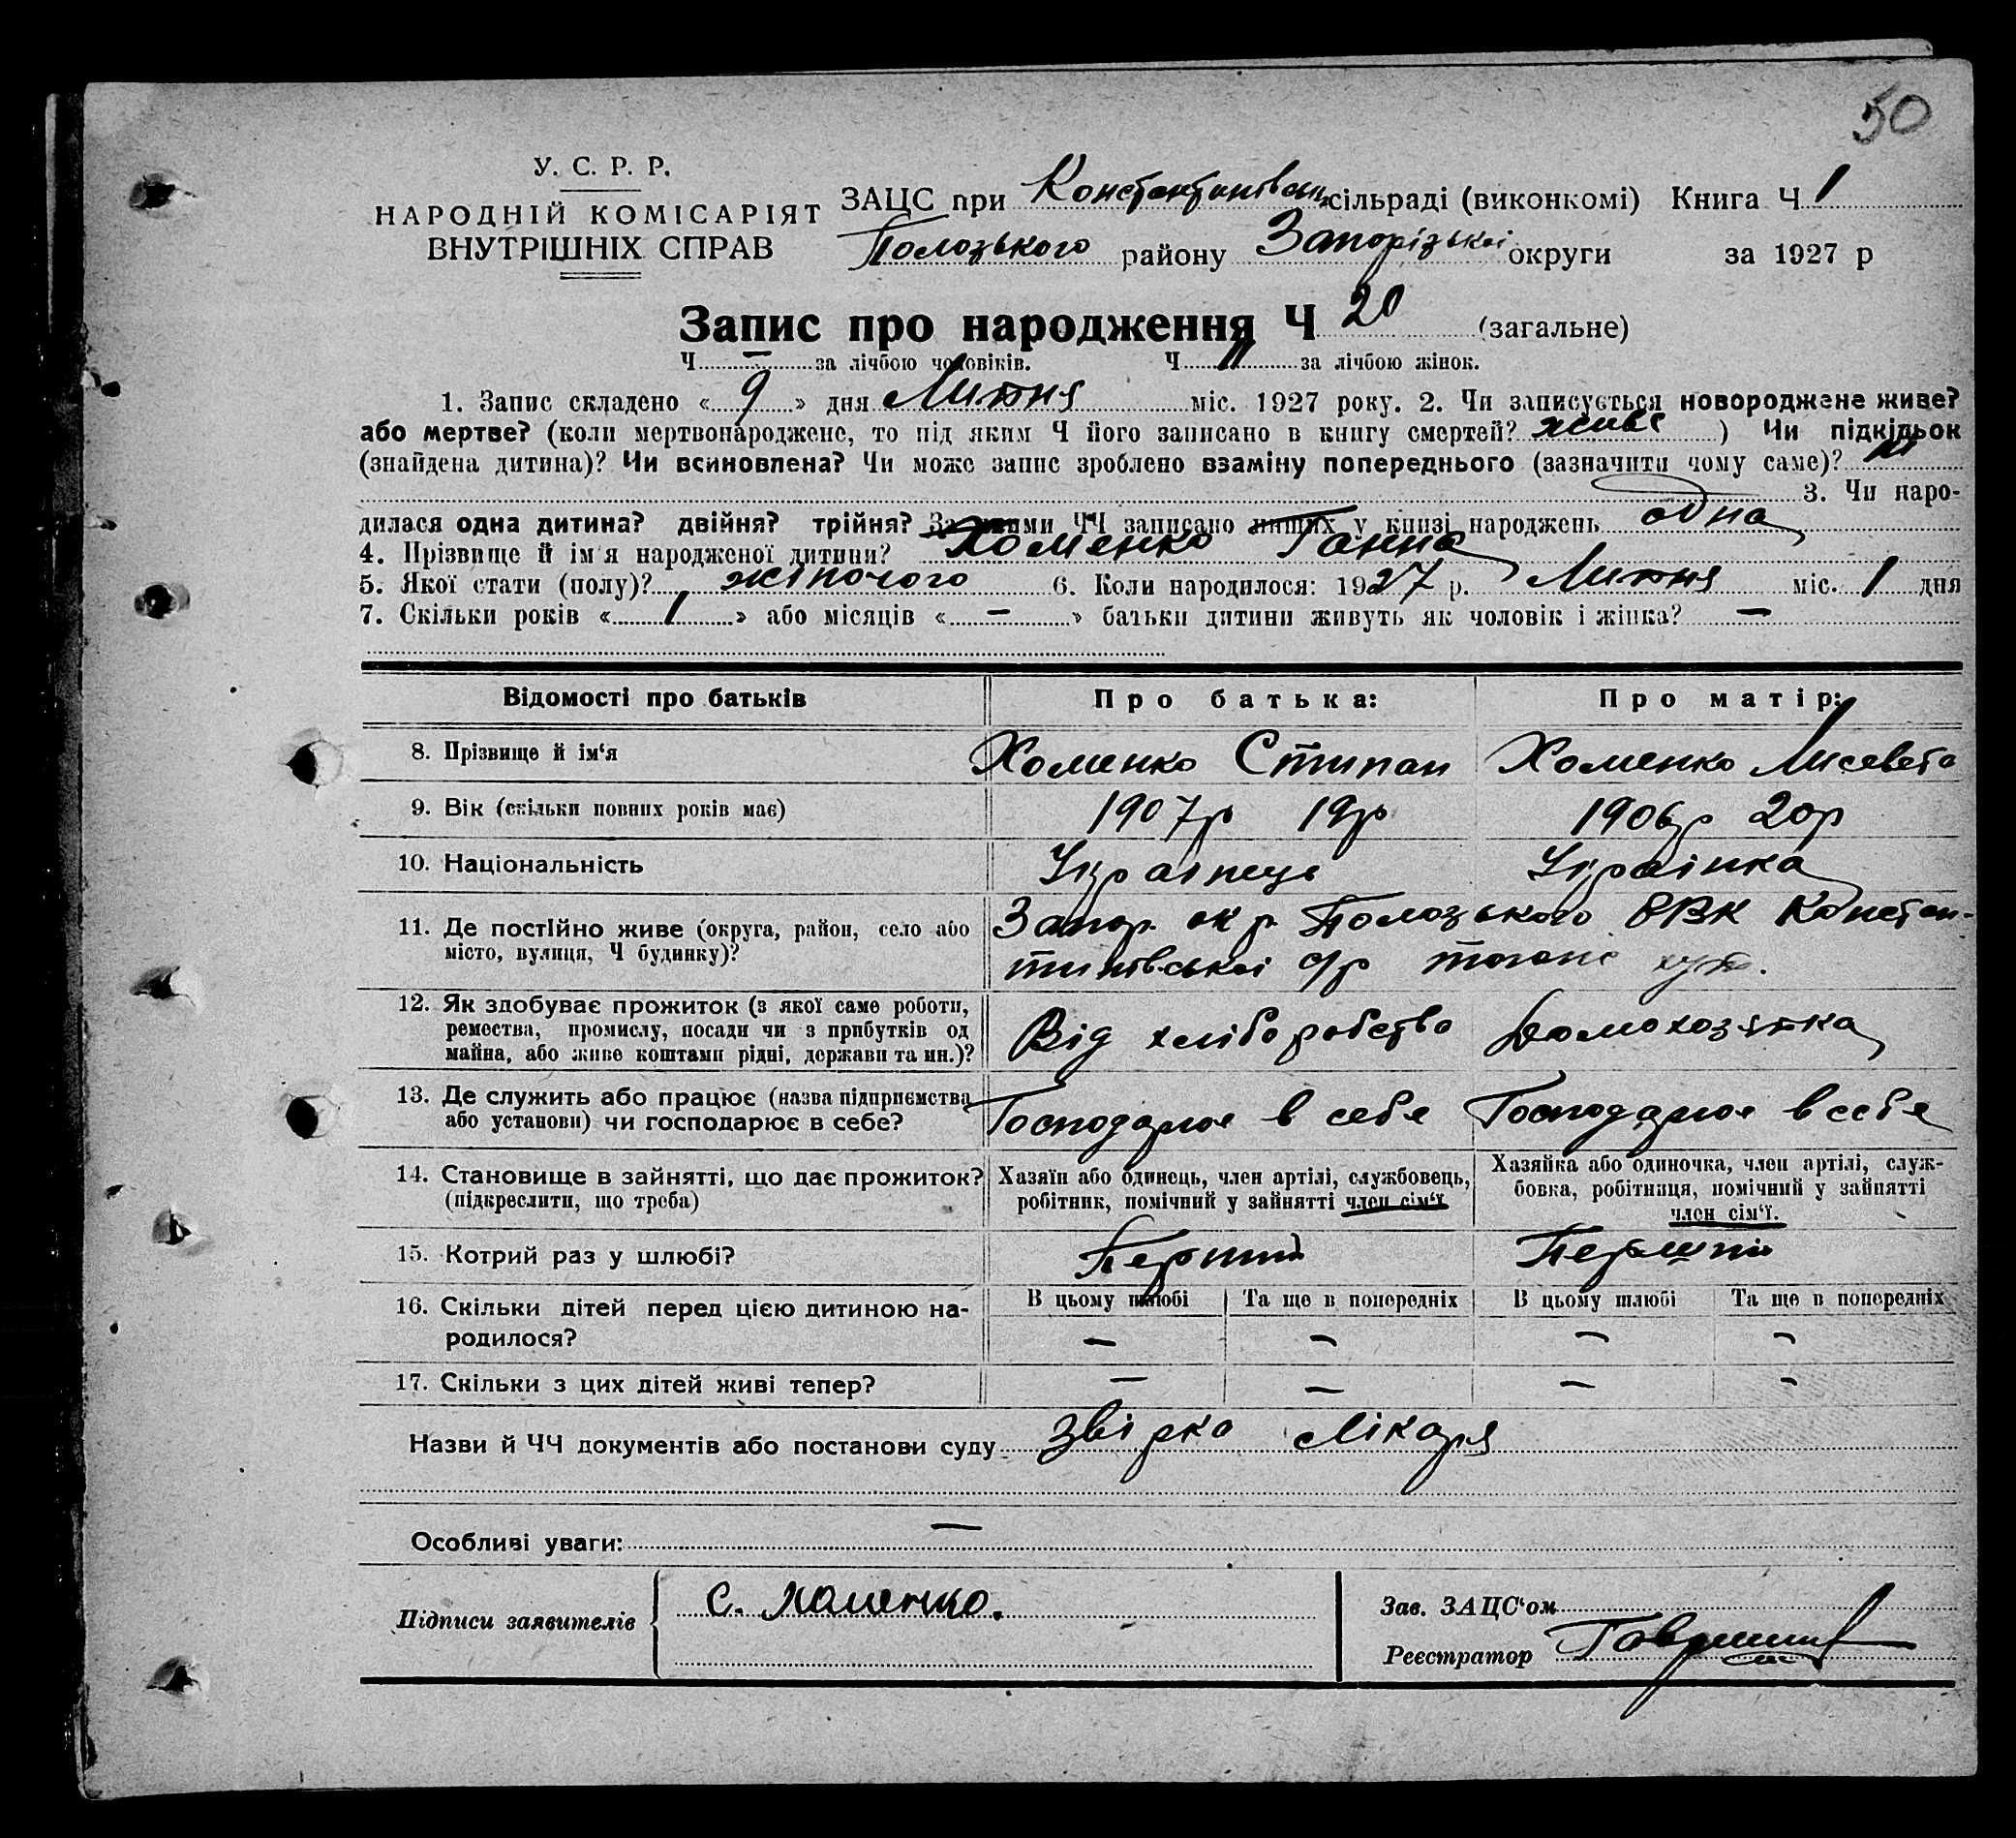 50
У. С. Р. Р.
НАРОДНІЙ КОМІСАРІЯТ
ВНУТРІШНІХ СПРАВ
ЗАЦС при Константинівськ сільраді (виконкомі) Книга Ч 1
Полозького району Запорізької округи за 1927 р
Запис про народження Ч 20 (загальне)
Ч — за лічбою чоловіків. Ч 11 за лічбою жінок.
1. Запис складено « 9 » дня Липня міс. 1927 року. 2. Чи записується новороджене живе?
або мертве? (коли мертвонароджене, то під яким Ч його записано в книгу смертей? живе ) Чи підкідьок
(знайдена дитина)? Чи всиновлена? Чи може запис зроблено взаміну попереднього (зазначити чому саме)? ні
3. Чи наро-
дилася одна дитина? двійня? трійня? За якими ЧЧ записано инших у книзі народжень одна
4. Прізвище й ім'я народженої дитини? Хоменко Ганна
5. Якої стати (полу)? жіночого 6. Коли народилося: 1927 р. Липня міс. 1 дня
7. Скільки років « 1 » або місяців « — » батьки дитини живуть як чоловік і жінка? —
Відомості про батьків Про батька: Про матір:
8. Прізвище й ім'я Хоменко Стипан Хоменко Лисевета
9. Вік (скільки повних років має) 1907р 19р 1906р 20р
10. Національність Українець Українка
11. Де постійно живе (округа, район, село або
місто, вулиця, Ч будинку)?
Запор. окр. Полозького РВК Констан-
тинівської с/р
12. Як здобуває прожиток (з якої саме роботи,
ремества, промислу, посади чи з прибутків од
майна, або живе коштами рідні, держави та ин.)?
Від хліборобства Домохозяйка
13. Де служить або працює (назва підприємства
або установи) чи господарює в себе?
Господарює в себе Господарює в себе
14. Становище в зайнятті, що дає прожиток?
(підкреслити, що треба)
Хазяїн або одинець, член артілі, службовець,
робітник, помічний у зайнятті член сім'ї
Хазяйка або одиночка, член артілі, служ-
бовка, робітниця, помічний у зайнятті
член сім'ї.
15. Котрий раз у шлюбі? Перший Перший
16. Скільки дітей перед цією дитиною на-
родилося?
В цьому шлюбі Та ще в попередніх В цьому шлюбі Та ще в попередніх
— — — —
17. Скільки з цих дітей живі тепер? — — — —
Назви й ЧЧ документів або постанови суду Звірка Лікаря
Особливі уваги: —
Підписи заявителів С. Хоменко.
Зав. ЗАЦС'ом
Реєстратор